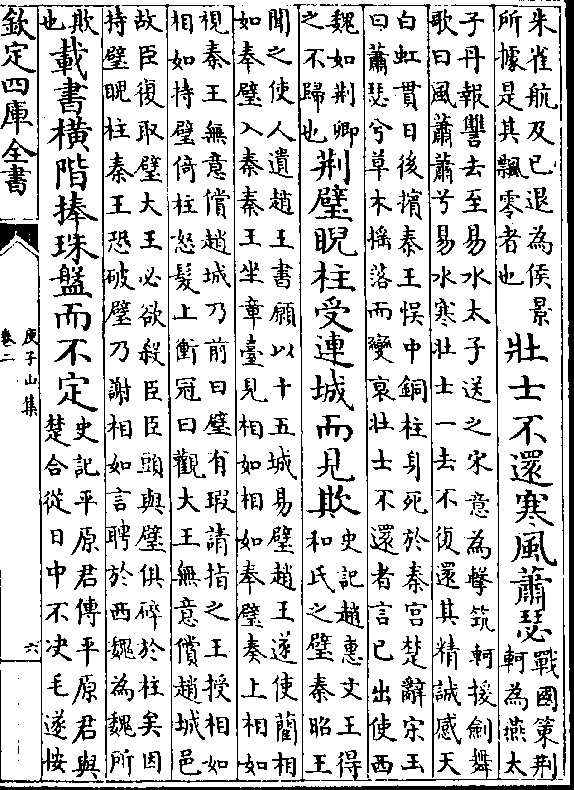 朱雀航及已退為侯景
所據是其飄零者也
壯士不還寒風蕭瑟
戰國策荆
軻為燕太
子丹報讐去至易水太子送之宋意為擊筑軻援劍舞
歌曰風蕭蕭兮易水寒壯士一去不復還其精誠感天
白虹貫日後擿秦王悮中銅柱身死於秦宫楚辭宋玉
曰蕭瑟兮草木揺落而變衰壯士不還者言已出使西
魏如荆卿
之不歸也
荆璧睨柱受連城而見欺
史記趙惠文王得
和氏之璧秦昭王
聞之使人遺趙王書願以十五城易璧趙王遂使藺相
如奉璧入秦秦王坐章臺見相如相如奉璧奏上相如
視秦王無意償趙城乃前曰璧有瑕請指之王授相如
相如持璧倚柱怒髮上衝冠曰觀大王無意償趙城邑
故臣復取璧大王必欲殺臣臣頭與璧俱碎於柱矣因
持璧睨柱秦王恐破璧乃謝相如言聘於西魏為魏所
欺
也
載書横階捧珠盤而不定
史記平原君傳平原君與
楚合從日中不决毛遂按
欽定四庫全書
庾子山集
卷二
六